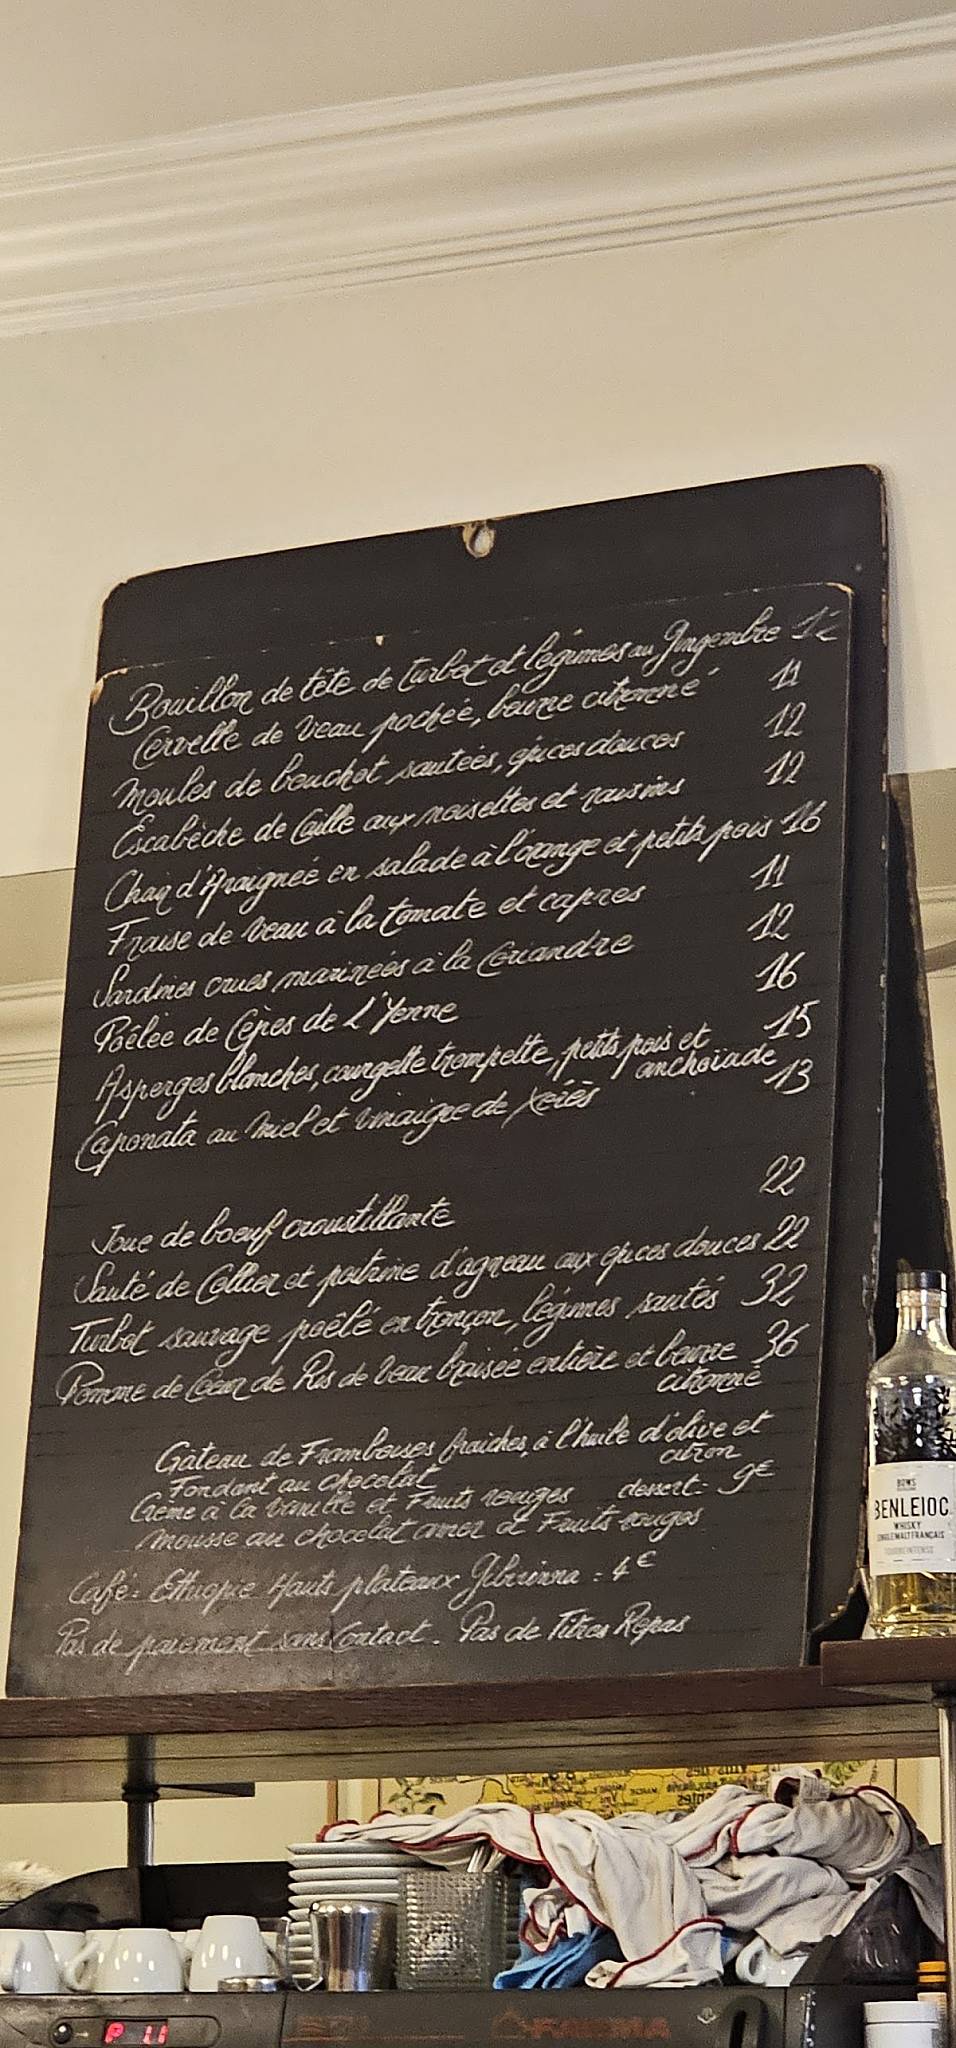 Bouillon de tête de turbot et légumes au Gingembre 12
Cervelle de veau pochée, beurre citronné 11
Moules de bouchot sautées, épices douces 12
Escabèche de Caille aux noisettes et raisins 12
Chair d'Araignée en salade à l'orange et petits pois 16
Fraise de veau à la tomate et capres 11
Sardines crues marinées à la Coriandre 12
Poêlée de Cèpes de L'Yonne 16
Asperges blanches, courgette trompette, petits pois et 15
anchoïade
Caponata au miel et vinaigre de Xérès 13
Joue de boeuf croustillante 22
Sauté de Collier et poitrine d'agneau aux épices douces 22
Turbot sauvage poêlé en tronçon, légumes sautés 32
Pomme de Coeur de Ris de Veau braisée entière et beurre 36
citronné
Gâteau de Framboises fraiches, à l'huile d'olive et
citron
Fondant au chocolat
Crème à la Vanille et Fruits rouges dessert: 9€
Mousse au chocolat amer et Fruits rouges
Café: Ethiopie Hauts plateaux : 4€
Pas de paiement sans Contact. Pas de Titres Repas
BOWS
BENLEIOC
WHISKY
SINGLE MALT FRANÇAIS
FAEMA